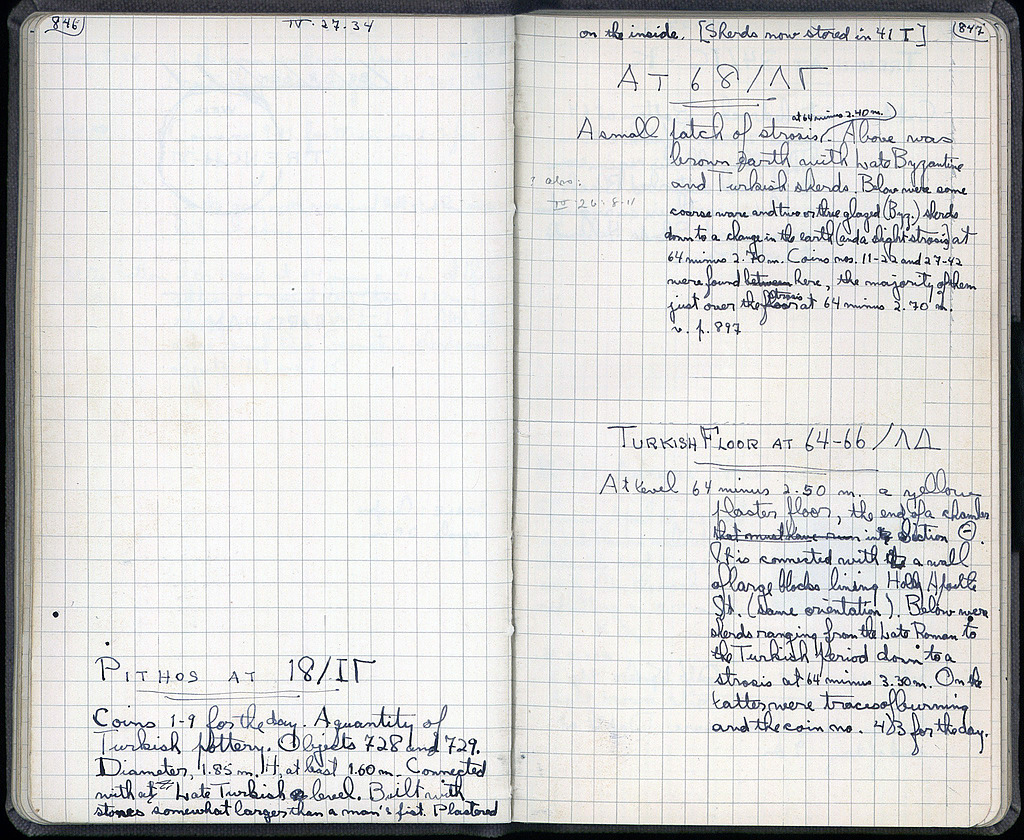 846
IV·27·34
PITHOS AT 18/ΙΓ
Coins 1-9 for the day. A quantity of
Turkish pottery. Objects 728 and 729.
Diameter, 1.85 m. H, at least 1.60 m. Connected
with a Late Turkish level. Built with
stones somewhat larger than a man's fist. Plastered
847
on the inside. [Sherds now stored in 41 I]
AT 68/ΛΓ
at 64 minus 2.40 m.
A small patch of strosis. Above was
brown earth with Late Byzantine
and Turkish sherds. Below were some
? also:
coarse ware and two or three glazed (Byz.) sherds
down to a change in the earth (and a slight strosis) at
64 minus 2.70 m. Coins nos. 11-22 and 27-42
were found between here, the majority of them
just over the floor strosis at 64 minus 2.70 m.
v. p. 897
TURKISH FLOOR AT 64-66/ΛΔ
At level 64 minus 2.50 m. a yellow
plaster floor, the end of a chamber
that must have run into Section Θ.
It is connected with a wall
of large blocks lining Holy Apostle
St. (same orientation). Below were
sherds ranging from the Late Roman to
the Turkish Period down to a
strosis at 64 minus 3.30 m. On the
latter were traces of burning
and the coin no. 43 for the day.